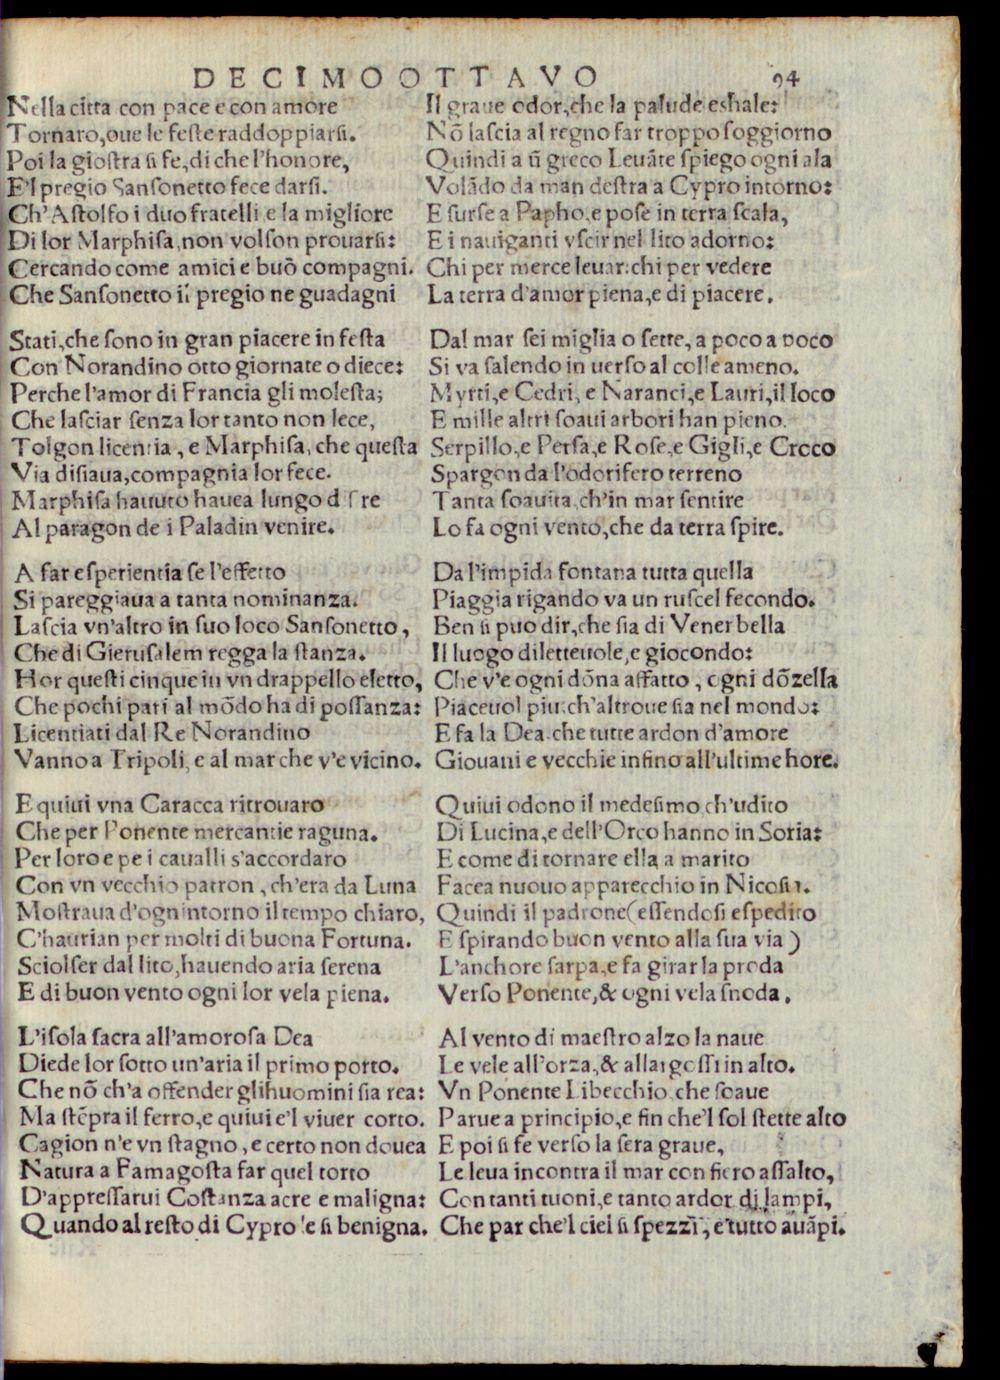 DECIMOOTTAVO 94
Nella citta con pace e con amore
Tornaro, oue le feste raddoppiarsi.
Poi la giostra si fe, di che l'honore,
E'l pregio Sansonetto fece darsi.
Ch'Astolfo i duo fratelli e la migliore
Di lor Marphisa, non volson prouarsi:
Cercando come amici e buō compagni.
Che Sansonetto il pregio ne guadagni

Stati, che sono in gran piacere in festa
Con Norandino otto giornate o diece:
Perche l'amor di Francia gli molesta;
Che lasciar senza lor tanto non lece,
Tolgon licentia, e Marphisa, che questa
Via disiaua, compagnia lor fece.
Marphisa hauuto hauea lungo disire
Al paragon de i Paladin venire.

A far esperientia se l'effetto
Si pareggiaua a tanta nominanza.
Lascia vn'altro in suo loco Sansonetto,
Che di Gierusalem regga la stanza.
Hor questi cinque in vn drappello eletto,
Che pochi pari al mōdo ha di possanza:
Licentiati dal Re Norandino
Vanno a Tripoli, e al mar che v'e vicino.

E quiui vna Caracca ritrouaro
Che per Ponente mercantie raguna.
Per loro e pe i caualli s'accordaro
Con vn vecchio patron, ch'era da Luna
Mostraua d'ognintorno il tempo chiaro,
C'haurian per molti di buona Fortuna.
Sciolser dal lito, hauendo aria serena
E di buon vento ogni lor vela piena.

L'isola sacra all'amorosa Dea
Diede lor sotto un'aria il primo porto.
Che nō ch'a offender glihuomini sia rea:
Ma stēpra il ferro, e quiui e'l viuer corto.
Cagion n'e vn stagno, e certo non douea
Natura a Famagosta far quel torto
D'appressarui Costanza acre e maligna:
Quando al resto di Cypro e si benigna.

Il graue odor, che la palude eshale:
Nō lascia al regno far troppo soggiorno
Quindi a ū greco Leuāte spiego ogni ala
Volādo da man destra a Cypro intorno:
E surse a Papho, e pose in terra scala,
E i nauiganti vscir nel lito adorno:
Chi per merce leuar: chi per vedere
La terra d'amor piena, e di piacere.

Dal mar sei miglia o sette, a poco a poco
Si va salendo in uerso al colle ameno.
Myrti, e Cedri, e Naranci, e Lauri, il loco
E mille altri soaui arbori han pieno.
Serpillo, e Persa, e Rose, e Gigli, e Croco
Spargon da l'odorifero terreno
Tanta soauita, ch'in mar sentire
Lo fa ogni vento, che da terra spire.

Da l'impida fontana tutta quella
Piaggia rigando va un ruscel fecondo.
Ben si puo dir, che sia di Vener bella
Il luogo diletteuole, e giocondo:
Che v'e ogni dōna affatto, ogni dōzella
Piaceuol piu: ch'altroue sia nel mondo:
E fa la Dea. che tutte ardon d'amore
Giouani e vecchie infino all'ultime hore.

Quiui odono il medesimo, ch'udito
Di Lucina, e dell'Orco hanno in Soria:
E come di tornare ella a marito
Facea nuouo apparecchio in Nicosia.
Quindi il padrone (essendosi espedito
E spirando buon vento alla sua via)
L'anchore sarpa, e fa girar la proda
Verso Ponente, & ogni vela snoda.

Al vento di maestro alzo la naue
Le vele all'orza, & allargossi in alto.
Vn Ponente Libecchio, che soaue
Parue a principio, e fin che'l sol stette alto
E poi si fe verso la sera graue,
Le leua incontra il mar con fiero assalto,
Con tanti tuoni, e tanto ardor di lampi,
Che par che'l ciel si spezzi, e tutto auāpi.